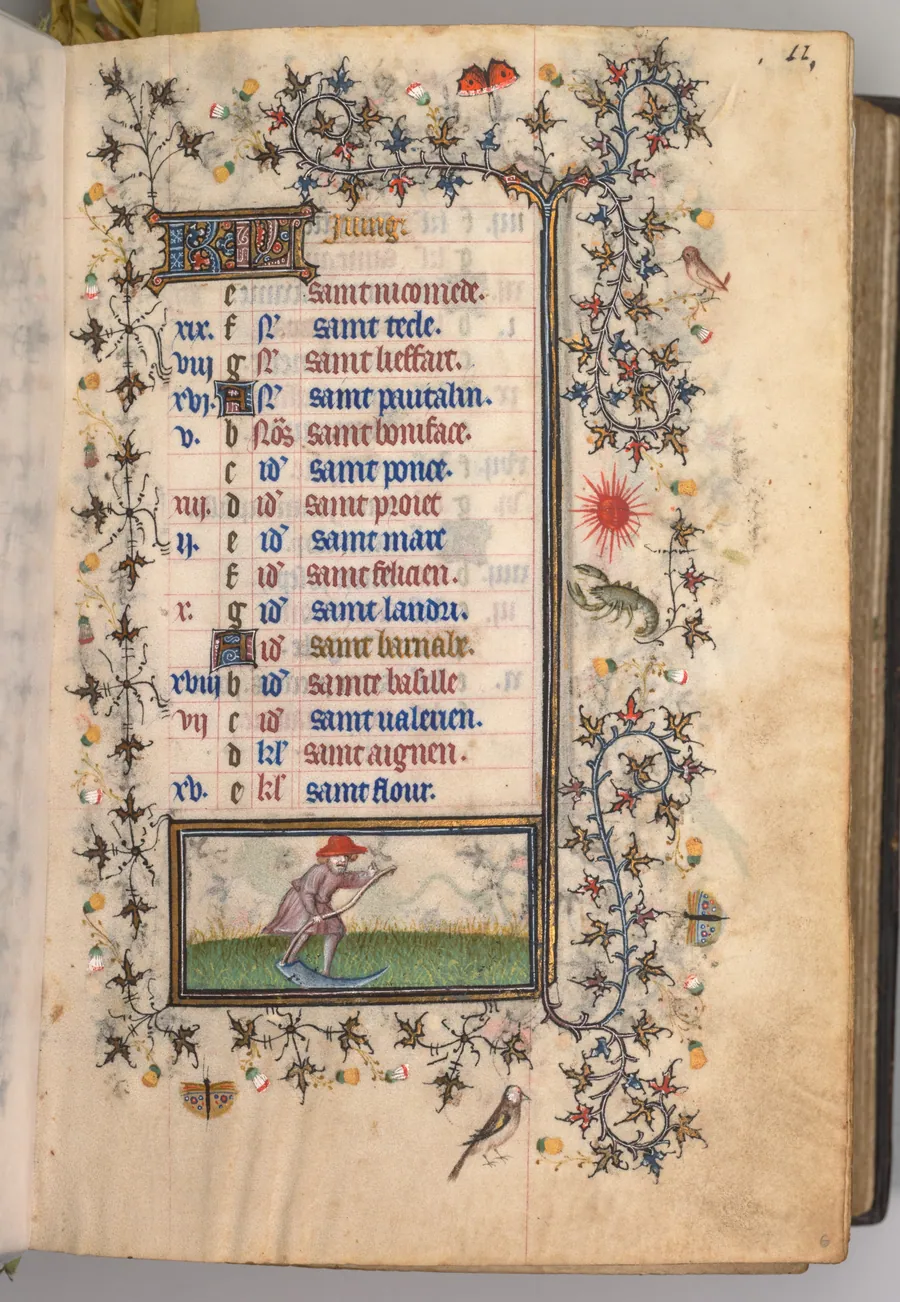 11,
KL Juing
e saint nicomede.
xix. f N saint tecle.
viij g N saint lieffart.
xvj. A N saint pantalin.
v. b Nōs saint boniface.
c id saint ponce.
iiij. d id saint proiet
ij. e id saint mart
f id saint felicien.
x. g id saint landri.
A id saint barnabe.
xviij b id sainte basille
vij c id saint ualerien.
d kl saint aignen.
xv. e kl saint flour.
6